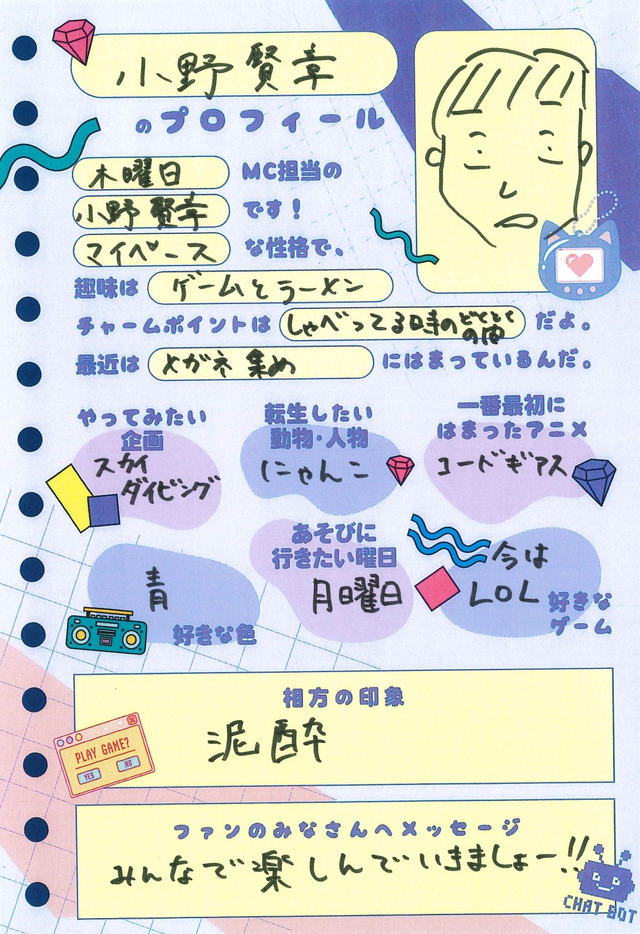 小野賢章
のプロフィール
木曜日 MC担当の
小野賢章 です!
マイペース な性格で、
趣味は ゲームとラーメン
チャームポイントは しゃべってる時のどくとくの間 だよ。
最近は メガネ集め にはまっているんだ。
やってみたい
企画
スカイ
ダイビング
転生したい
動物・人物
にゃんこ
一番最初に
はまったアニメ
コードギアス
青
好きな色
あそびに
行きたい曜日
月曜日
今は
LOL
好きな
ゲーム
相方の印象
泥酔
PLAY GAME?
YES NO
ファンのみなさんへメッセージ
みんなで楽しんでいきましょー!!
CHAT BOT